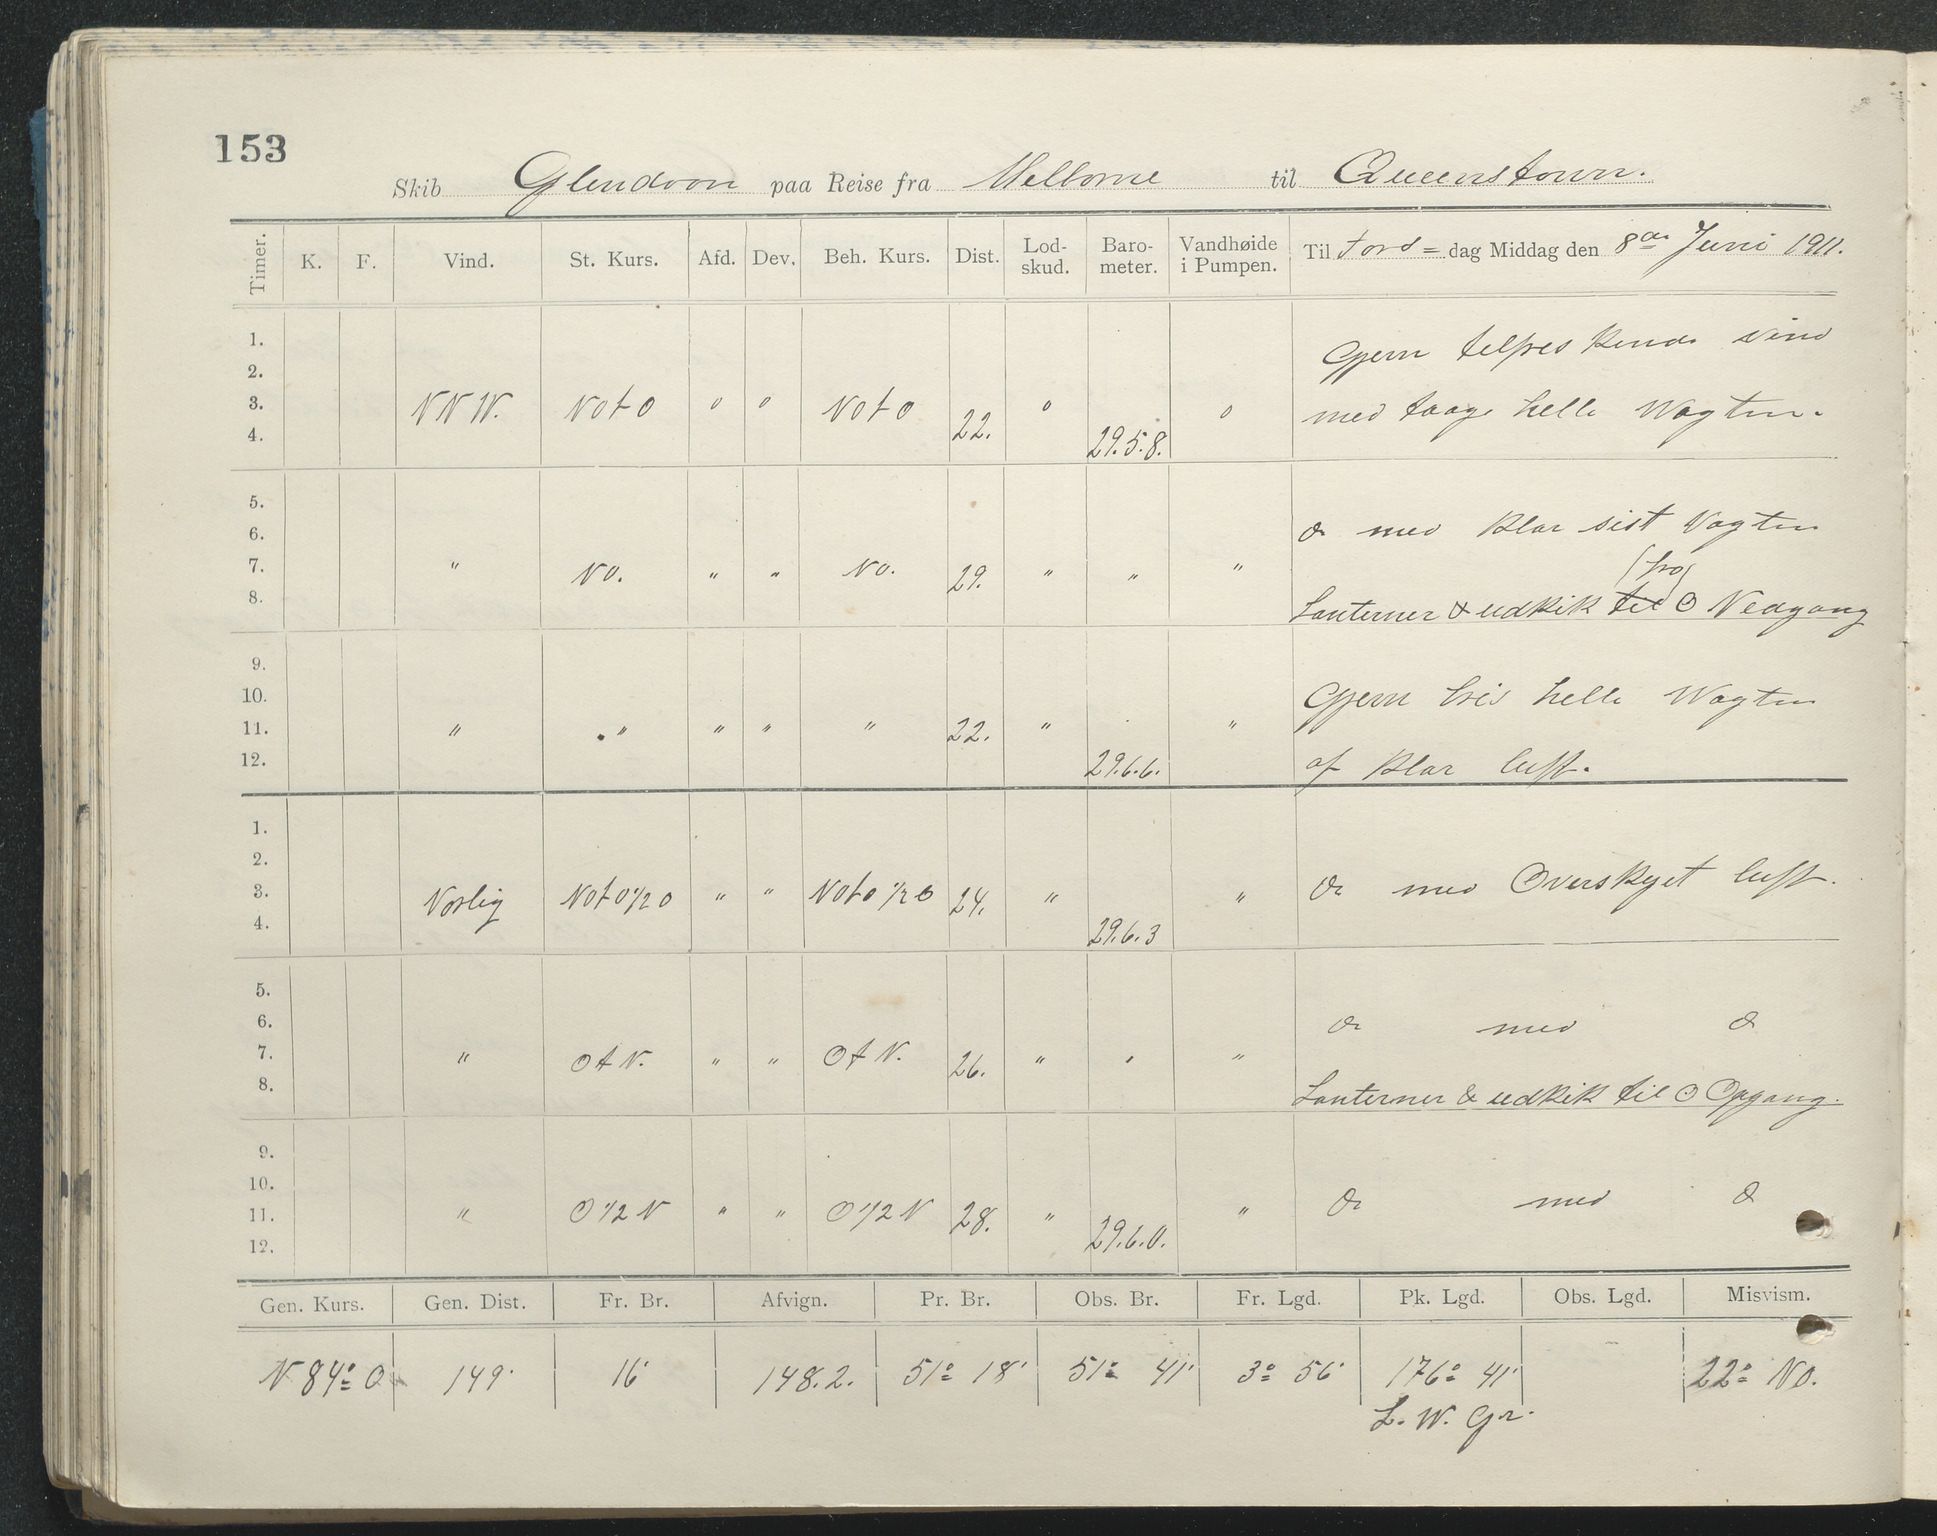 153
Skib Glendoon paa Reise fra Melborne til Queenstown.
Timer. K. F. Vind. St. Kurs. Afd. Dev. Beh. Kurs. Dist. Lod-skud. Baro-meter. Vandhøide i Pumpen. Til Tors = dag Middag den 8de Juni 1911.
1. Gjem vind
2.
3. NNW. NOtO 0 0 NOtO 22. 0 0 med taage helle Wagten.
4. 29.5.8.
5.
6. do med Klar sist Vagten
7. " NO. " " NO. 29. " " " (fra)
8. Lanterner & udkik til ☉ Nedgang
9.
10. Gjem bris helle Wagten
11. " " " " " 22. " "
12. 29.6.6. af Klar luft.
1.
2.
3. Norlig NOtO 1/2 O " " NOtO 1/2 O 24. " " do med Overskyet luft.
4. 29.6.3
5.
6. do med do
7. " OtN. " " OtN. 26. " " "
8. Lanterner & udkik til ☉ Opgang.
9.
10.
11. " O 1/2 N " " O 1/2 N 28. " " do med do
12. 29.6.0.
Gen. Kurs. Gen. Dist. Fr. Br. Afvign. Pr. Br. Obs. Br. Fr. Lgd. Pk. Lgd. Obs. Lgd. Misvism.
N 84° O 149' 16' 148.2. 51° 18' 51° 41' 3° 56' 176° 41' 22° NO.
L. W. Gr.